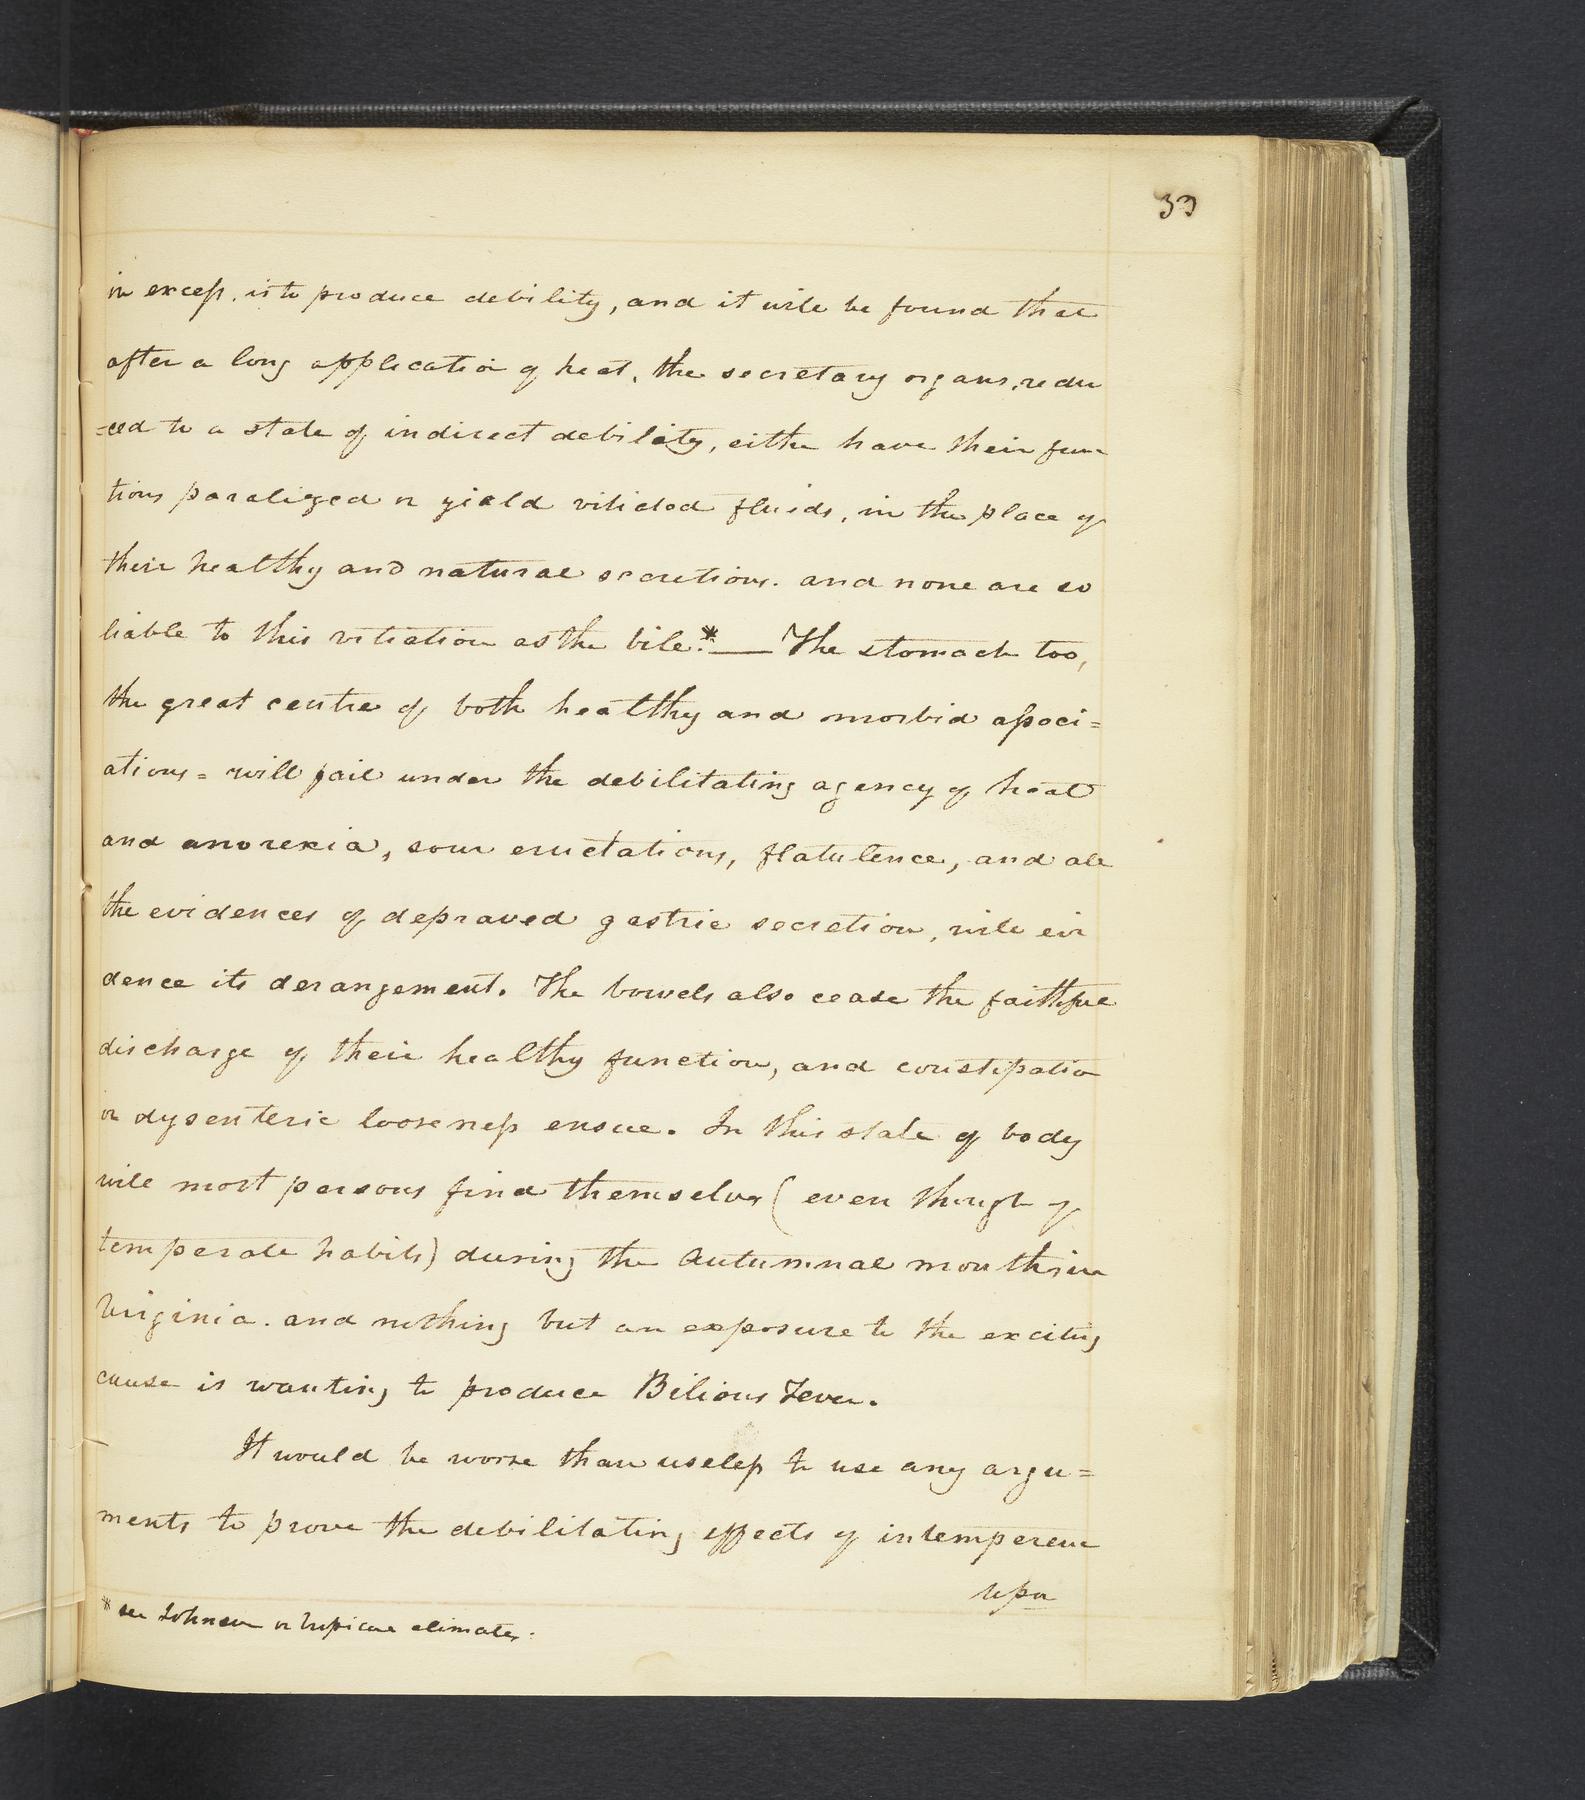 33
in excess, is to produce debility, and it will be found that
after a long application of heat, the secretary organs, redu
=ced to a state of indirect debility, either have their func
tions paralized or yield vitiated fluids, in the place of
their healthy and natural secretions. and none are so
liable to this vitiation as the bile.* — The stomach too,
the great centre of both healthy and morbid associ=
ations = will fail under the debilitating agency of heat
and anorexia, sour eructations, flatulence, and all
the evidences of depraved gastric secretion, will evi
dence its derangement. The bowels also cease the faithful
discharge of their healthy function, and constipation
or dysenteric looseness ensue. In this state of body
will most persons find themselves (even though of
temperate habits) during the Autumnal months in
Virginia. and nothing but an exposure to the exciting
cause is wanting to produce Bilious Fever.
It would be worse than useless to use any argu=
ments to prove the debilitating effects of intemperence
upon
* see Johnson on tropical climates.